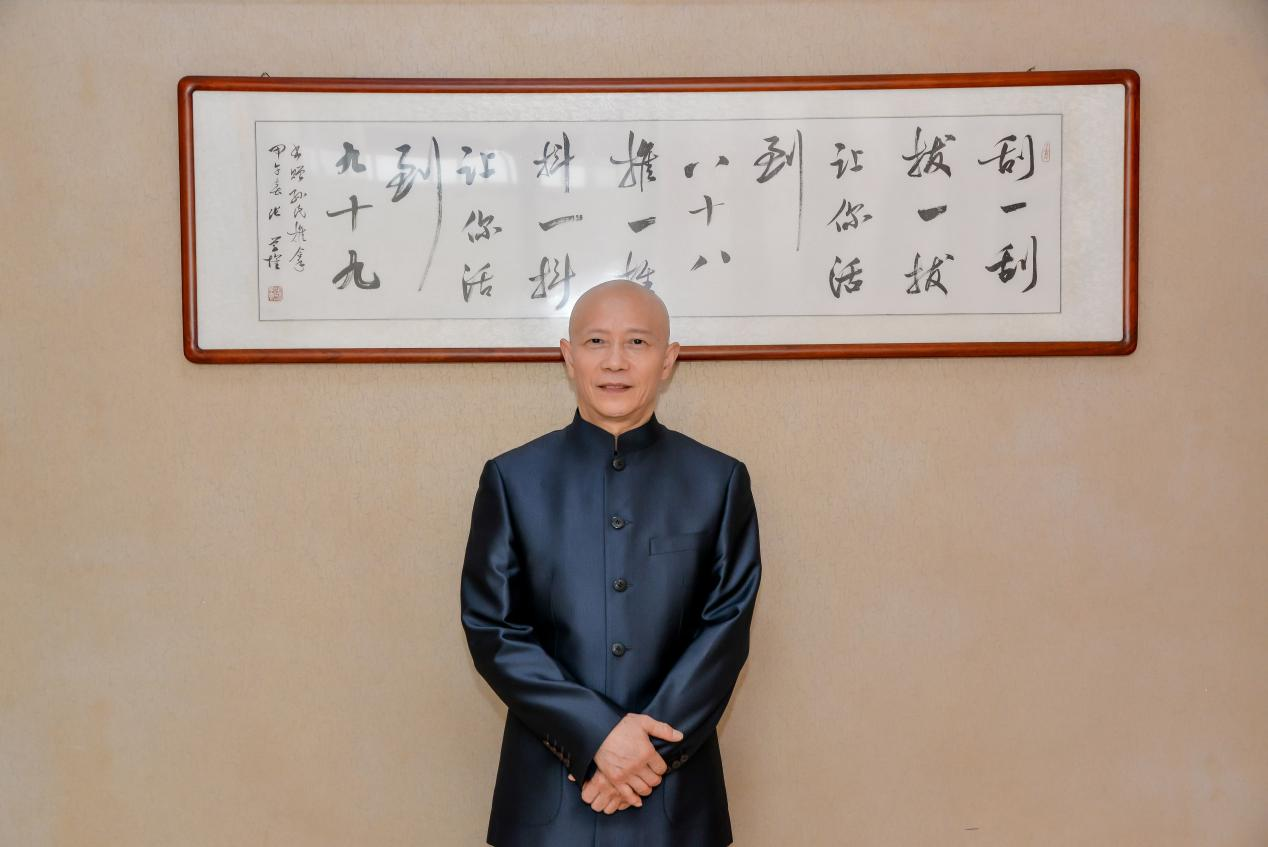 刮一刮
拔一拔
让你活
到
八十八
推一推
抖一抖
让你活
到
九十九
书赠孙氏推拿
甲午春